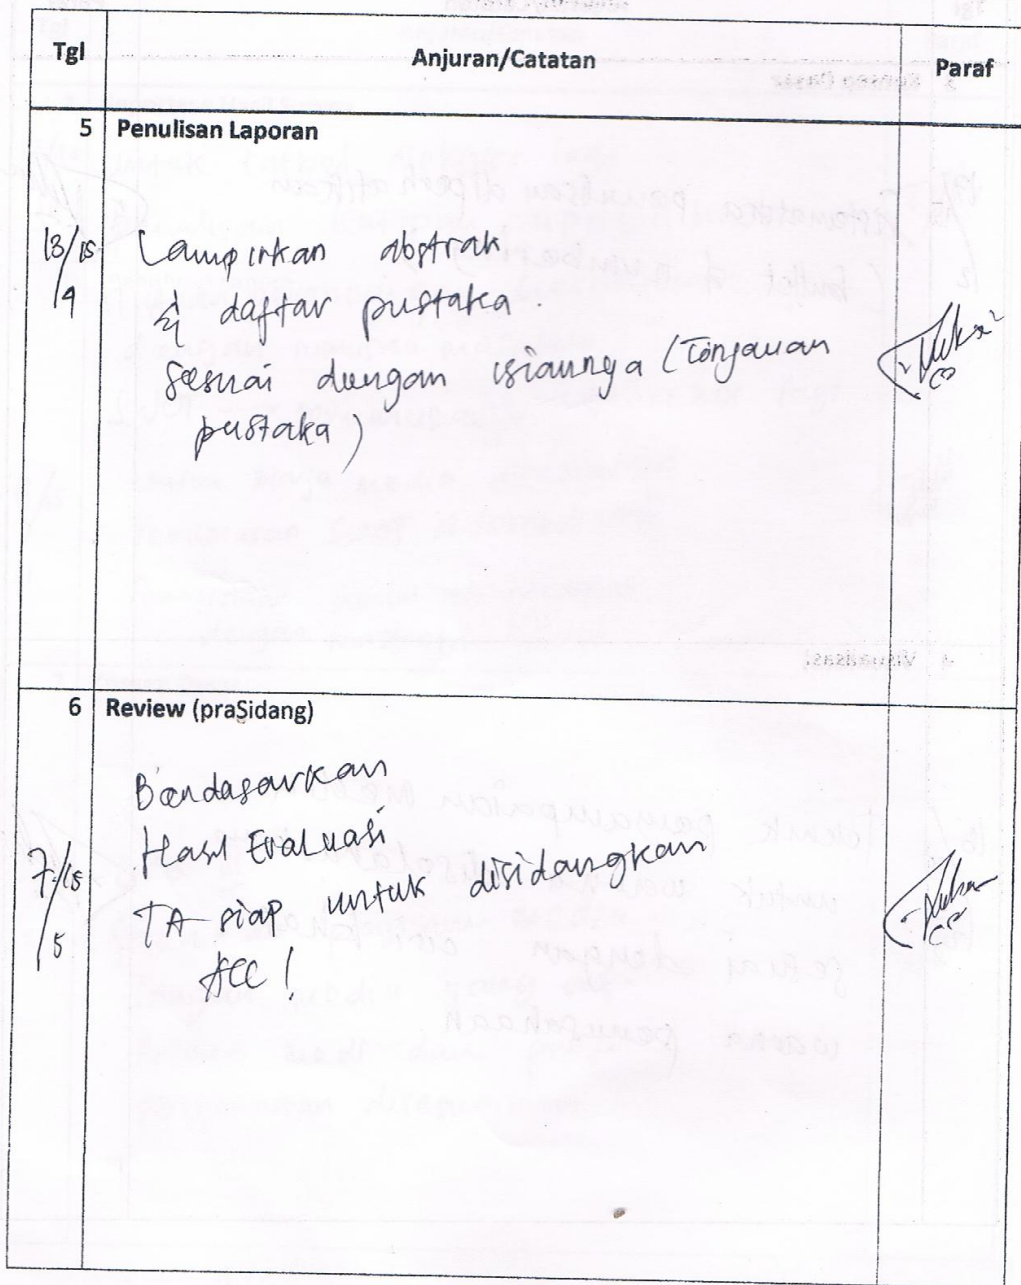 Tgl Anjuran/Catatan Paraf
5 Penulisan Laporan
13/15 Lampirkan abstrak
/4 & daftar pustaka.
sesuai dengan isiannya (Tinjauan
pustaka)
6 Review (praSidang)
Berdasarkan
Hasil Evaluasi
7/15 TA siap untuk disidangkan
/5 ACC!